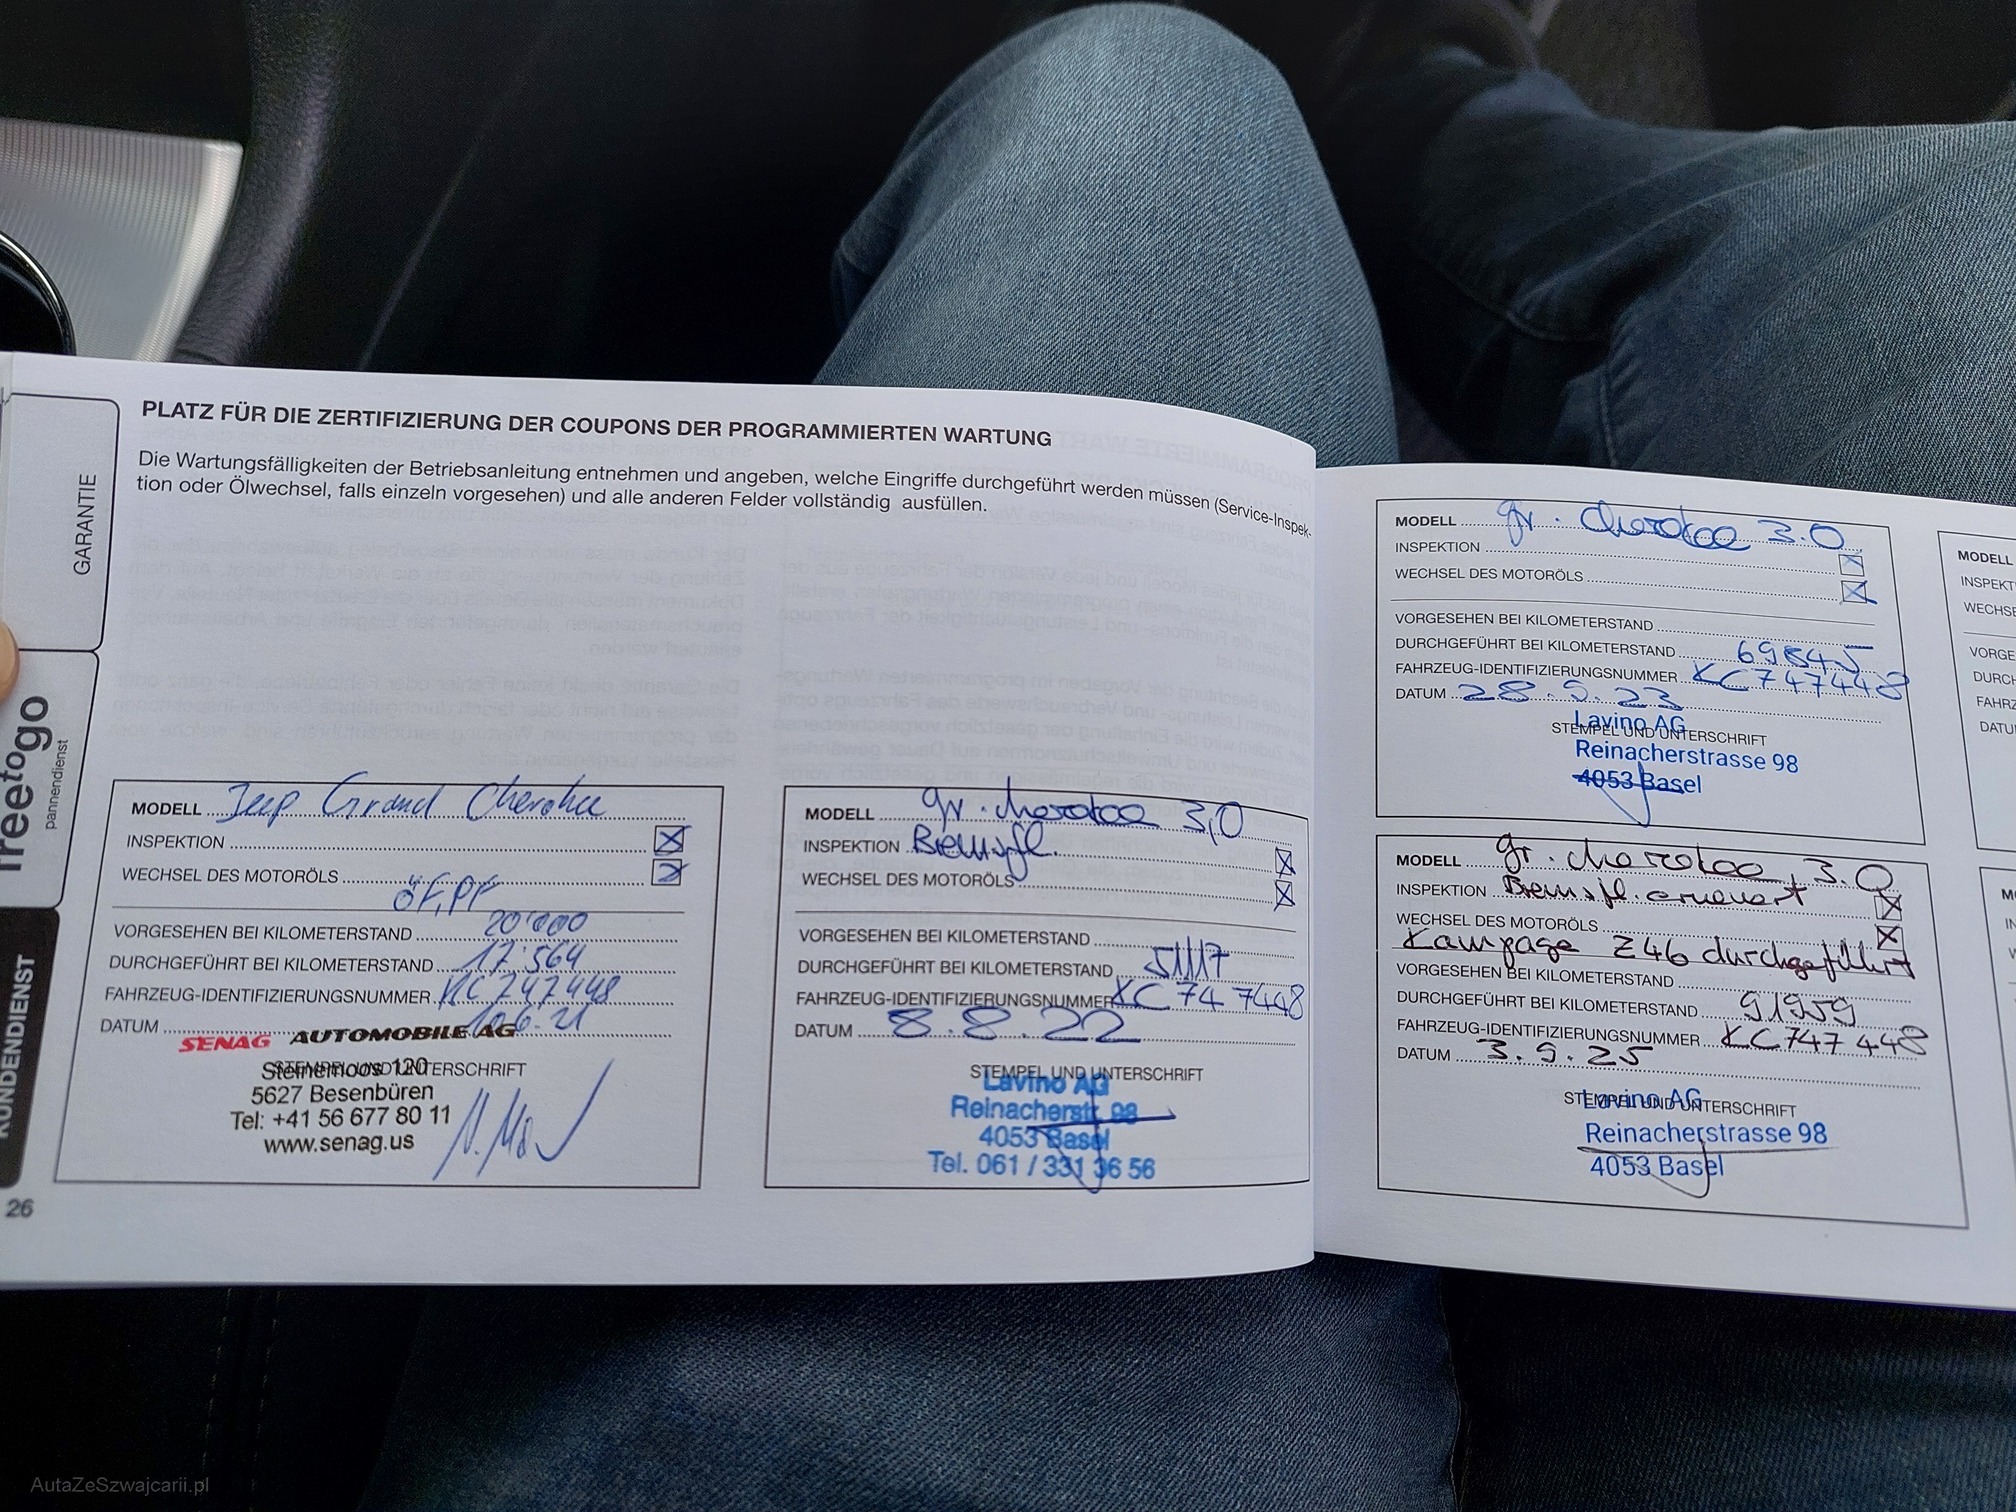 PLATZ FÜR DIE ZERTIFIZIERUNG DER COUPONS DER PROGRAMMIERTEN WARTUNG
Die Wartungsfälligkeiten der Betriebsanleitung entnehmen und angeben, welche Eingriffe durchgeführt werden müssen (Service-Inspek-
tion oder Ölwechsel, falls einzeln vorgesehen) und alle anderen Felder vollständig ausfüllen.
GARANTIE
freetogo
pannendienst
KUNDENDIENST
26
MODELL Jeep Grand Cherokee
INSPEKTION
WECHSEL DES MOTORÖLS
ÖF, PF
VORGESEHEN BEI KILOMETERSTAND 20'000
DURCHGEFÜHRT BEI KILOMETERSTAND 17'564
FAHRZEUG-IDENTIFIZIERUNGSNUMMER KC747448
DATUM 10.6.21
SENAG AUTOMOBILE AG
STEMPEL UND UNTERSCHRIFT
Steinenmoos 120
5627 Besenbüren
Tel: +41 56 677 80 11
www.senag.us
MODELL gr. cherokee 3,0
INSPEKTION Bremsfl.
WECHSEL DES MOTORÖLS
VORGESEHEN BEI KILOMETERSTAND
DURCHGEFÜHRT BEI KILOMETERSTAND 51117
FAHRZEUG-IDENTIFIZIERUNGSNUMMER KC747448
DATUM 8.8.22
STEMPEL UND UNTERSCHRIFT
Lavino AG
Reinacherstr. 98
4053 Basel
Tel. 061 / 331 36 56
MODELL gr. cherokee 3.0
INSPEKTION
WECHSEL DES MOTORÖLS
VORGESEHEN BEI KILOMETERSTAND
DURCHGEFÜHRT BEI KILOMETERSTAND 69845
FAHRZEUG-IDENTIFIZIERUNGSNUMMER KC747448
DATUM 28.9.23
Lavino AG
STEMPEL UND UNTERSCHRIFT
Reinacherstrasse 98
4053 Basel
MODELL gr. cherokee 3.0
INSPEKTION Bremsfl. erneuert
WECHSEL DES MOTORÖLS
Kampage Z46 durchgeführt
VORGESEHEN BEI KILOMETERSTAND
DURCHGEFÜHRT BEI KILOMETERSTAND 91959
FAHRZEUG-IDENTIFIZIERUNGSNUMMER KC747448
DATUM 3.9.25
STEMPEL UND UNTERSCHRIFT
Lavino AG
Reinacherstrasse 98
4053 Basel
MODELL
AutaZeSzwajcarii.pl